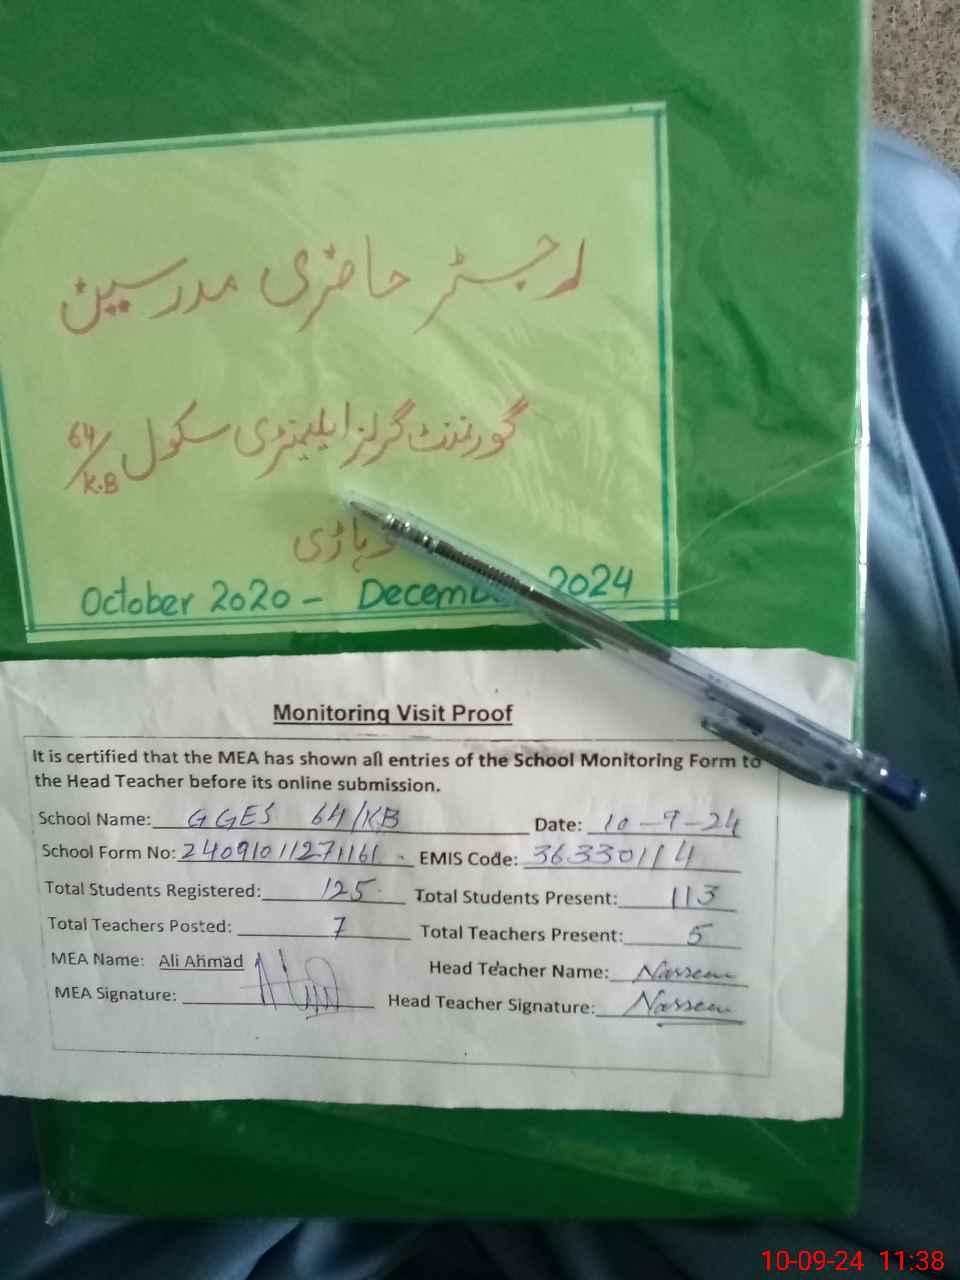 رجسٹر حاضری مدرسین
گورنمنٹ گرلز ایلیمنٹری سکول 64/K.B
وہاڑی
October 2020 - December 2024
Monitoring Visit Proof
It is certified that the MEA has shown all entries of the School Monitoring Form to
the Head Teacher before its online submission.
School Name: GGES 64/KB Date: 10-9-24
School Form No: 24091011271161 EMIS Code: 36330114
Total Students Registered: 125 Total Students Present: 113
Total Teachers Posted: 7 Total Teachers Present: 5
MEA Name: Ali Ahmad Head Teacher Name: Nasreen
MEA Signature: Head Teacher Signature: Nasreen
10-09-24 11:38